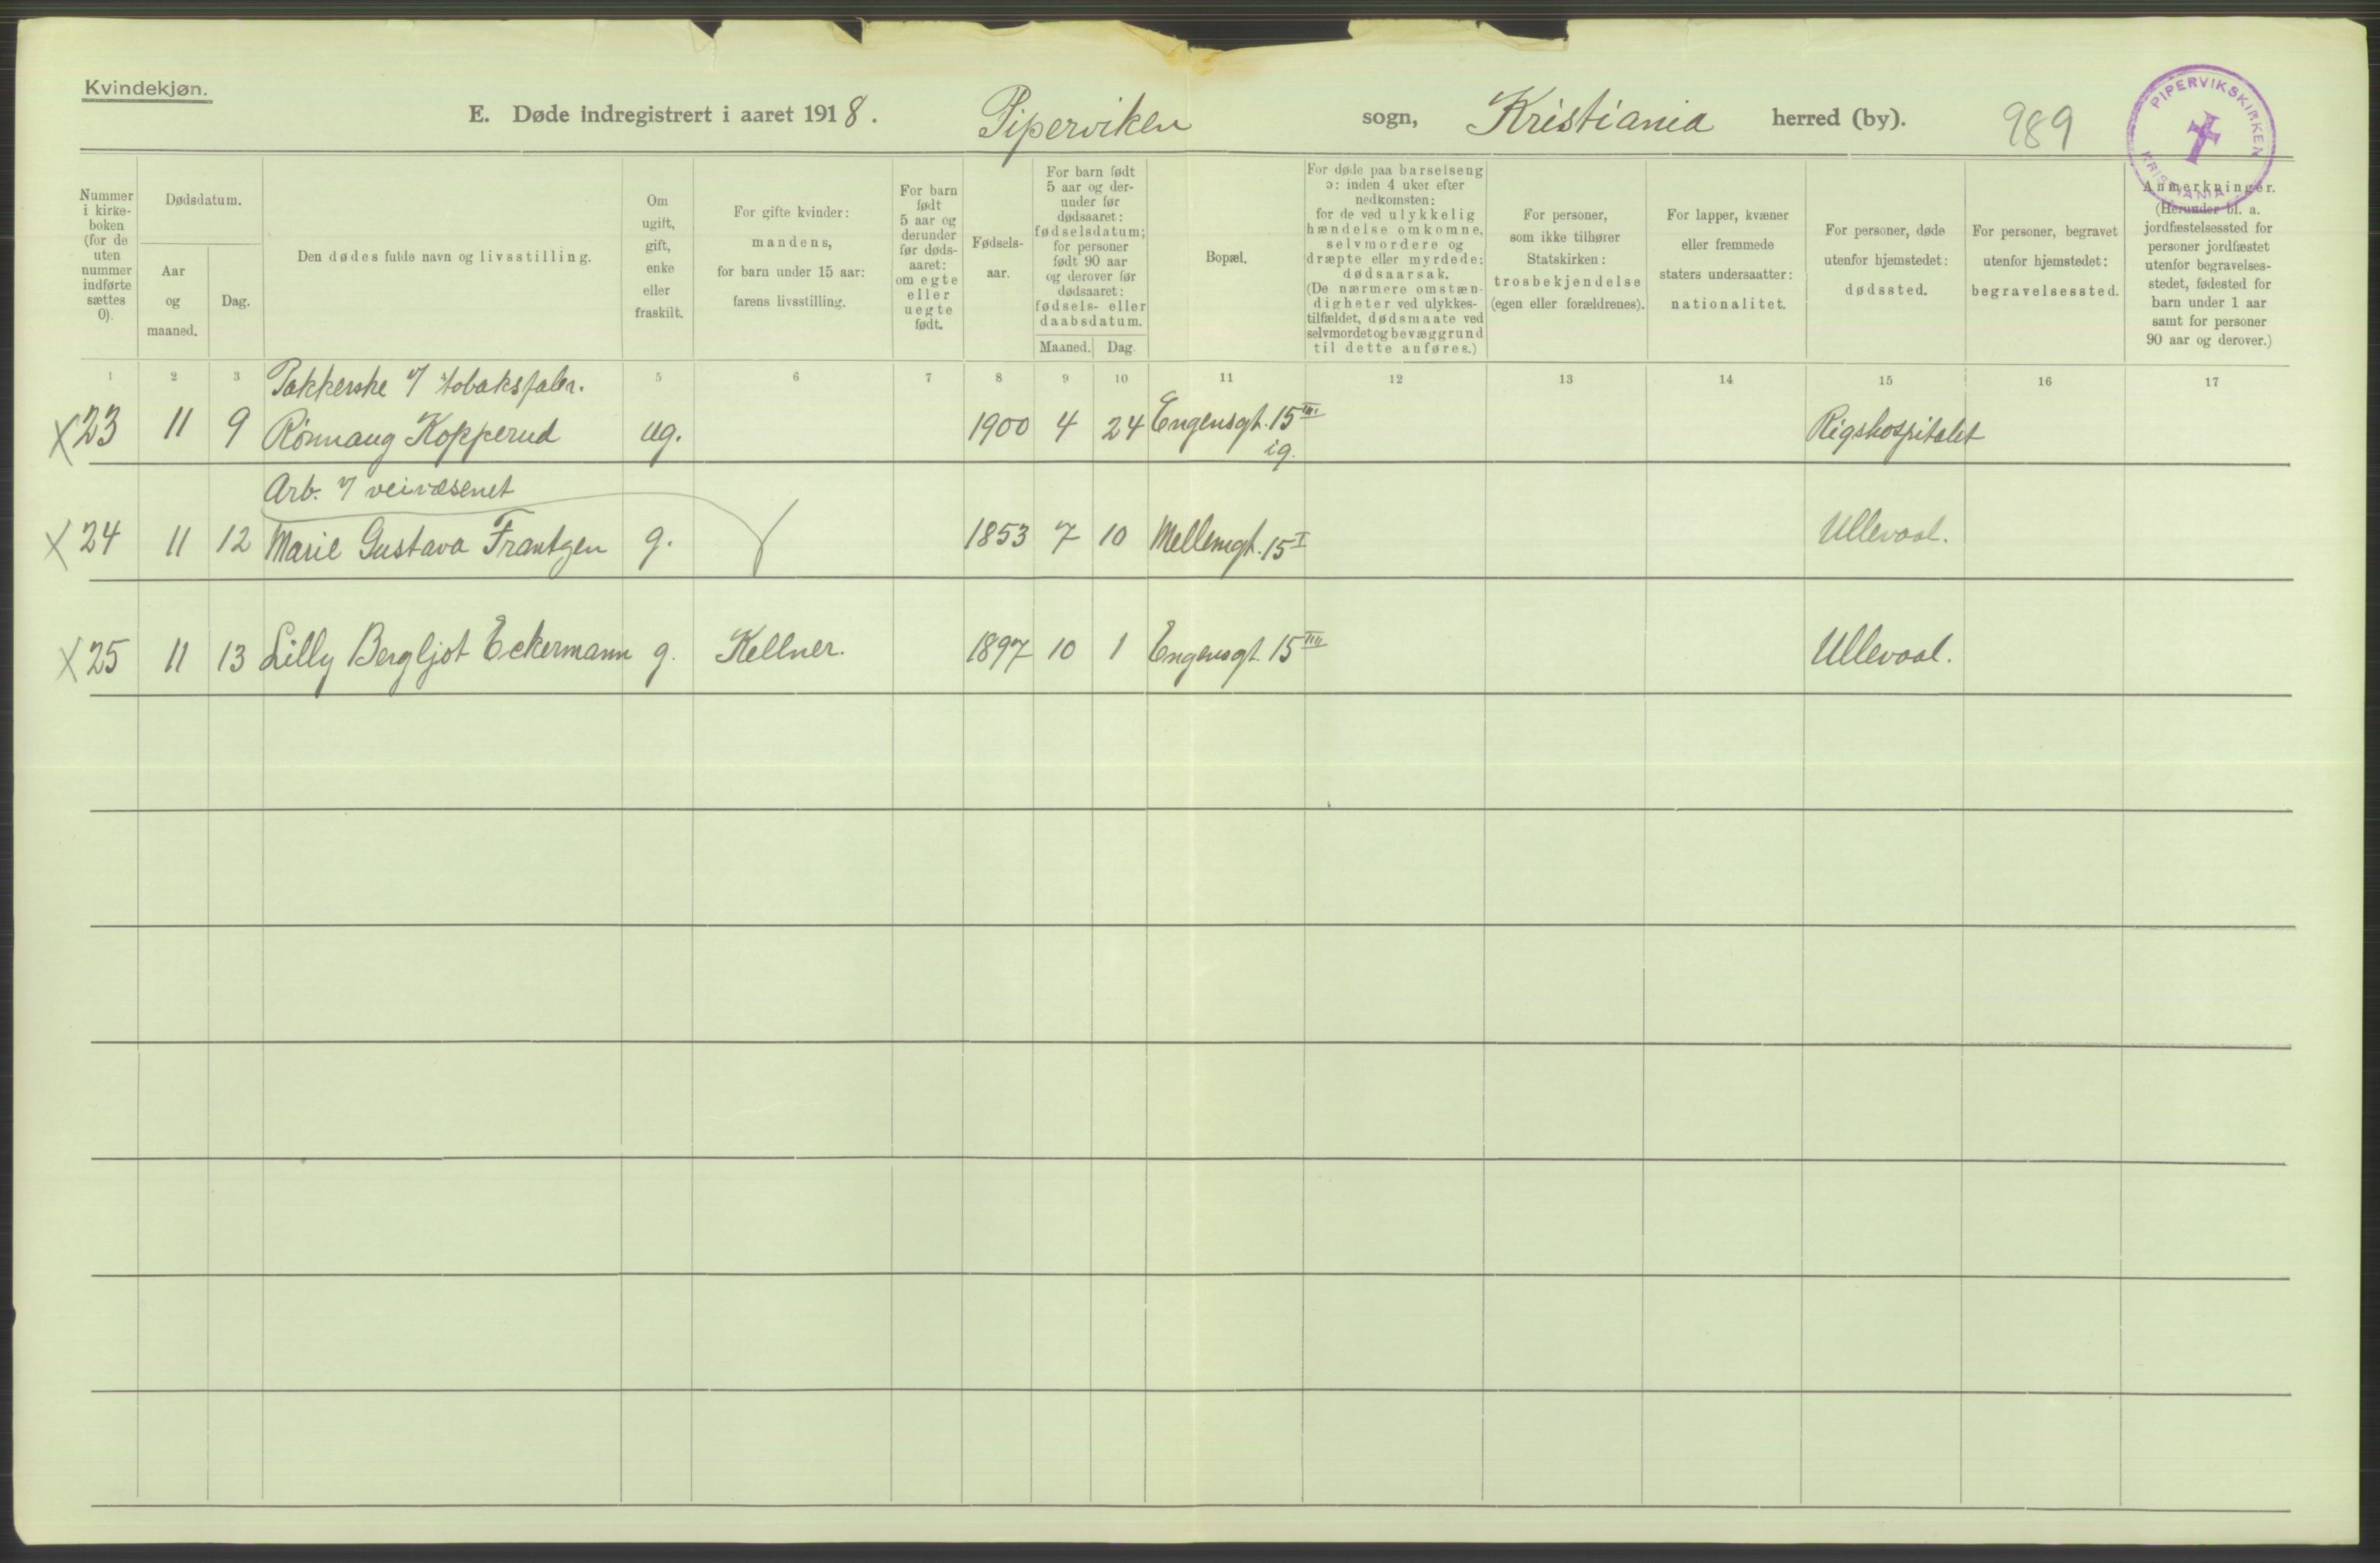 Kvindekjøn.
E. Døde indregistrert i aaret 1918. Piperviken sogn, Kristiania herred (by). 989
PIPERVIKSKIRKEN KRISTIANIA
Nummer
i kirke-
boken
(for de
uten
nummer
indførte
sættes
0).
Dødsdatum.
Aar
og
maaned.
Dag.
Den dødes fulde navn og livsstilling.
Om
ugift,
gift,
enke
eller
fraskilt.
For gifte kvinder:
mandens,
for barn under 15 aar:
farens livsstilling.
For barn
født
5 aar og
derunder
før døds-
aaret:
om egte
eller
uegte
født.
Fødsels-
aar.
For barn født
5 aar og der-
under før
dødsaaret:
fødselsdatum;
for personer
født 90 aar
og derover før
dødsaaret:
fødsels- eller
daabsdatum.
Maaned. Dag.
Bopæl.
For døde paa barselseng
ɔ: inden 4 uker efter
nedkomsten:
for de ved ulykkelig
hændelse omkomne,
selvmordere og
dræpte eller myrdede:
dødsaarsak.
(De nærmere omstæn-
digheter ved ulykkes-
tilfældet, dødsmaate ved
selvmordet og bevæggrund
til dette anføres.)
For personer,
som ikke tilhører
Statskirken:
trosbekjendelse
(egen eller forældrenes).
For lapper, kvæner
eller fremmede
staters undersaatter:
nationalitet.
For personer, døde
utenfor hjemstedet:
dødssted.
For personer, begravet
utenfor hjemstedet:
begravelsessted.
Anmerkninger.
(Herunder bl. a.
jordfæstelsessted for
personer jordfæstet
utenfor begravelses-
stedet, fødested for
barn under 1 aar
samt for personer
90 aar og derover.)
1 2 3 5 6 7 8 9 10 11 12 13 14 15 16 17
Pakkerske v/ tobaksfabr.
X 23 11 9 Rønnaug Kopperud ug. 1900 4 24 Engensgt. 15 III Rigshospitalet
ig.
Arb. v/ veivæsenet
X 24 11 12 Marie Gustava Frantzen g. 1853 7 10 Mellemgt. 15 I Ullevaal.
X 25 11 13 Lilly Bergljot Eckermann g. Kellner. 1897 10 1 Engensgt. 15 III Ullevaal.